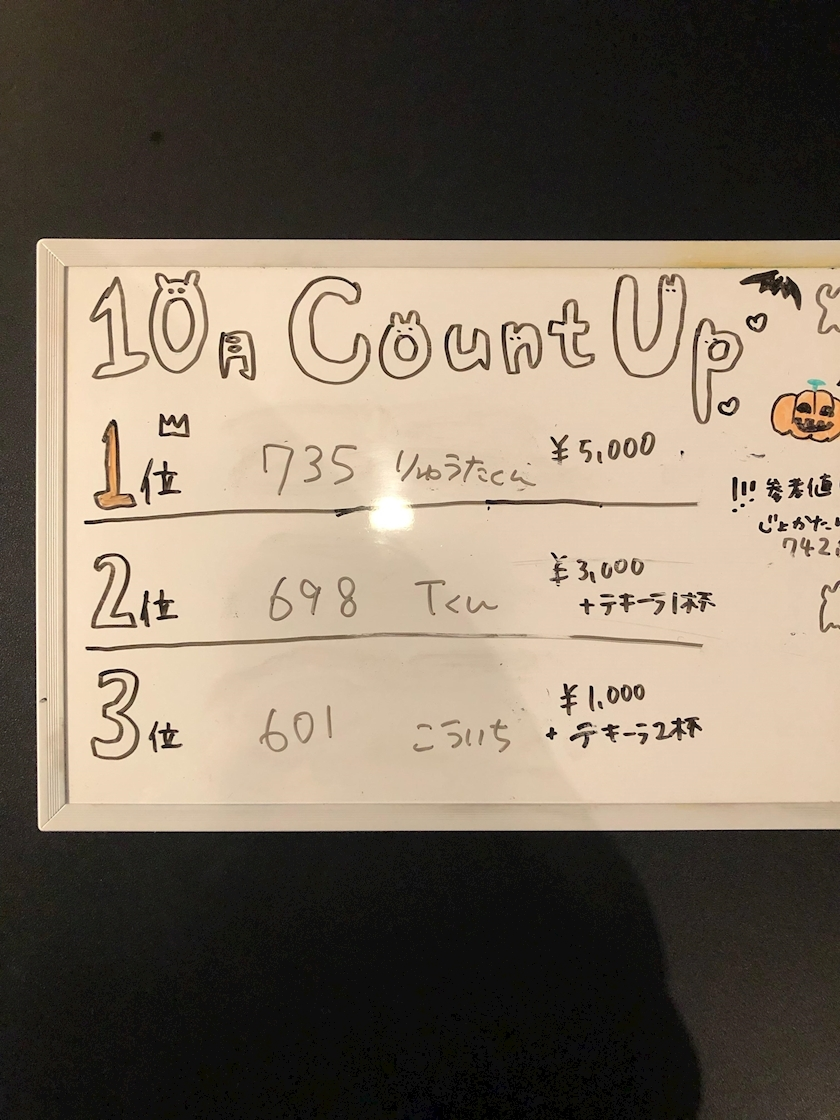 10月 Count Up
1位 735 りゅうたくん ¥5,000
2位 698 Tくん ¥3,000
+テキーラ1杯
3位 601 こういち ¥1,000
+テキーラ2杯
!!! 参考値
742